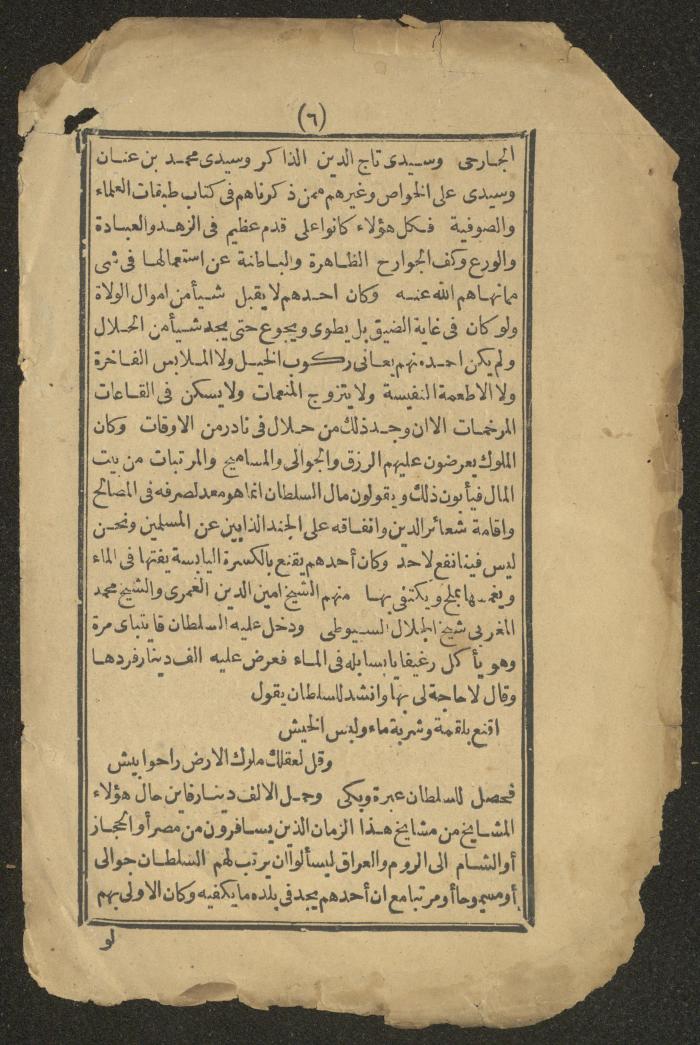 (٦)
الجارحى وسيدى تاج الدين الذاكر وسيدى محمد بن عنان
وسيدى على الخواص وغيرهم ممن ذكرناهم فى كتاب طبقات العلماء
والصوفية فكل هؤلاء كانوا على قدم عظيم فى الزهد والعبادة
والورع وكف الجوارح الظاهرة والباطنة عن استعمالها فى شى
مما نهاهم الله عنه وكان احدهم لا يقبل شيأ من اموال الولاة
ولو كان فى غاية الضيق بل يطوى ويجوع حتى يجد شيأ من الحلال
ولم يكن احد منهم يعانى ركوب الخيل ولا الملابس الفاخرة
ولا الاطعمة النفيسة ولا يتزوج المنعمات ولا يسكن فى القاعات
المرخمات الا ان وجد ذلك من حلال فى نادر من الاوقات وكان
الملوك يعرضون عليهم الرزق والجوالى والمساميح والمرتبات من بيت
المال فيأبون ذلك ويقولون مال السلطان انما هو معد لصرفه فى المصالح
واقامة شعائر الدين وانفاقه على الجند الذابين عن المسلمين ونحن
ليس فينا نفع لاحد وكان أحدهم يقنع بالكسرة اليابسة يفتها فى الماء
ويغمسها بملح ويكتفى بها منهم الشيخ امين الدين الغمرى والشيخ محمد
المغربى شيخ الجلال السيوطى ودخل عليه السلطان قايتباى مرة
وهو يأكل رغيفا يابسا بله فى الماء فعرض عليه الف دينار فردها
وقال لا حاجة لى بها وانشد للسلطان يقول
اقنع بلقمة وشربة ماء ولبس الخيش
وقل لعقلك ملوك الارض راحوا بيش
فحصل للسلطان عبرة وبكى وحمل الالف دينار فاين حال هؤلاء
المشايخ من مشايخ هذا الزمان الذين يسافرون من مصر أو الحجاز
أو الشام الى الروم والعراق ليسألوا ان يرتب لهم السلطان جوالى
أو مسموحا أو مرتبا مع ان أحدهم يجد فى بلده ما يكفيه وكان الاولى بهم
لو